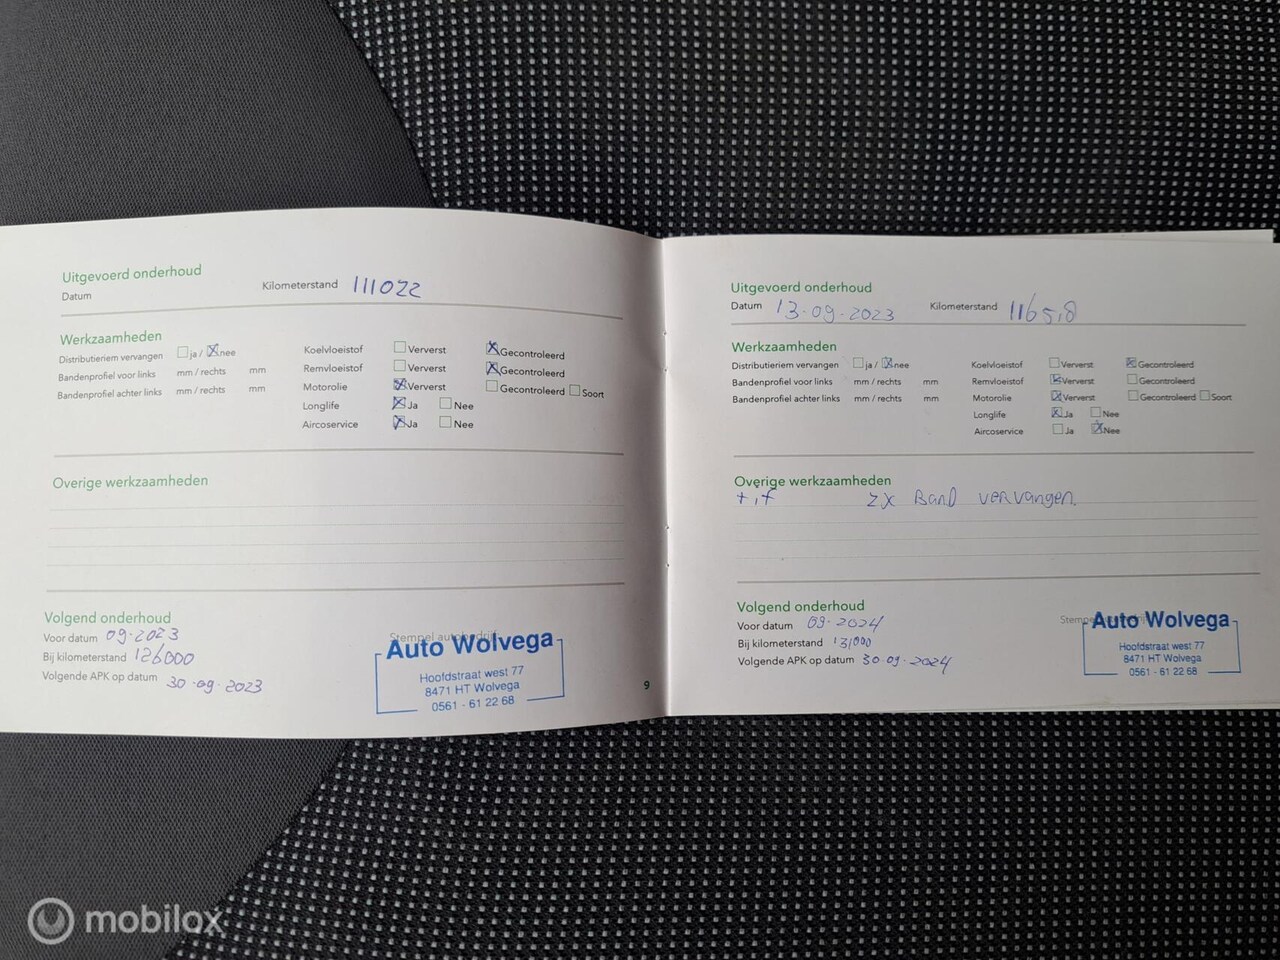 Uitgevoerd onderhoud
Datum Kilometerstand 111022
Werkzaamheden
Distributieriem vervangen ja / nee
Bandenprofiel voor links mm / rechts mm
Bandenprofiel achter links mm / rechts mm
Koelvloeistof Ververst Gecontroleerd
Remvloeistof Ververst Gecontroleerd
Motorolie Ververst Gecontroleerd Soort
Longlife Ja Nee
Aircoservice Ja Nee
Overige werkzaamheden
Volgend onderhoud
Voor datum 09-2023
Bij kilometerstand 126000
Volgende APK op datum 30-09-2023
Stempel autobedrijf
Auto Wolvega
Hoofdstraat west 77
8471 HT Wolvega
0561 - 61 22 68
9
Uitgevoerd onderhoud
Datum 13-09-2023 Kilometerstand
Werkzaamheden
Distributieriem vervangen ja / nee
Bandenprofiel voor links mm / rechts mm
Bandenprofiel achter links mm / rechts mm
Koelvloeistof Ververst Gecontroleerd
Remvloeistof Ververst Gecontroleerd
Motorolie Ververst Gecontroleerd Soort
Longlife Ja Nee
Aircoservice Ja Nee
Overige werkzaamheden
2x Band vervangen
Volgend onderhoud
Voor datum 09-2024
Bij kilometerstand 131000
Volgende APK op datum 30-09-2024
Auto Wolvega
Hoofdstraat west 77
8471 HT Wolvega
0561 - 61 22 68
mobilox